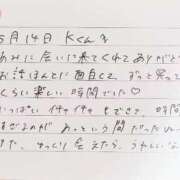 5月14日 Kくん
あみに会いに来てくれてありがと
お話ほんとに面白くて、ずっと笑って
くらい楽しい時間でした♡
いっぱいイチャイチャもできて、時間
すぎるのが あっという間だった
た、ゆっくり会えたら、うれしいな